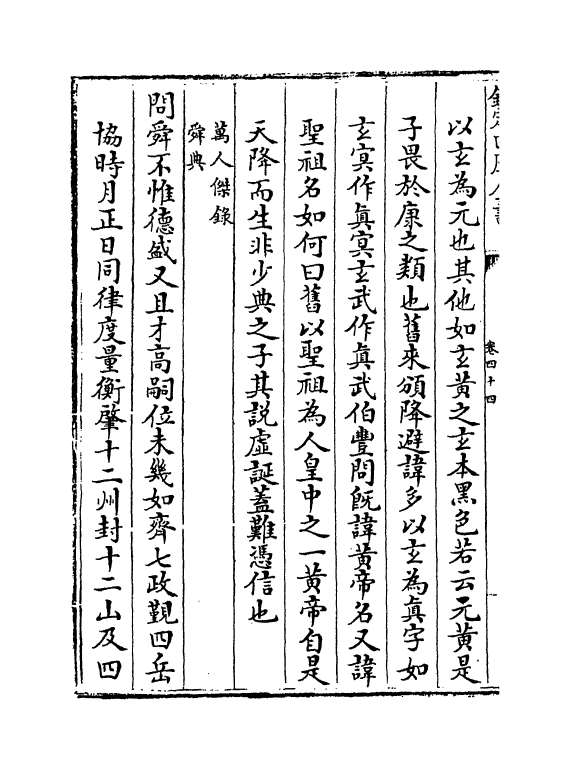 卷四十四
以𤣥為元也其他如𤣥黄之𤣥本黑色若云元黄是
子畏於康之類也舊來頒降避諱多以𤣥為眞字如
𤣥㝠作眞㝠𤣥武作眞武伯豐問旣諱黄帝名又諱
聖祖名如何曰舊以聖祖為人皇中之一黄帝自是
天降而生非少典之子其説虛誕蓋難憑信也
萬人傑錄
舜典
問舜不惟德盛又且才高嗣位未幾如齊七政覲四岳
協時月正日同律度量衡肇十二州封十二山及四